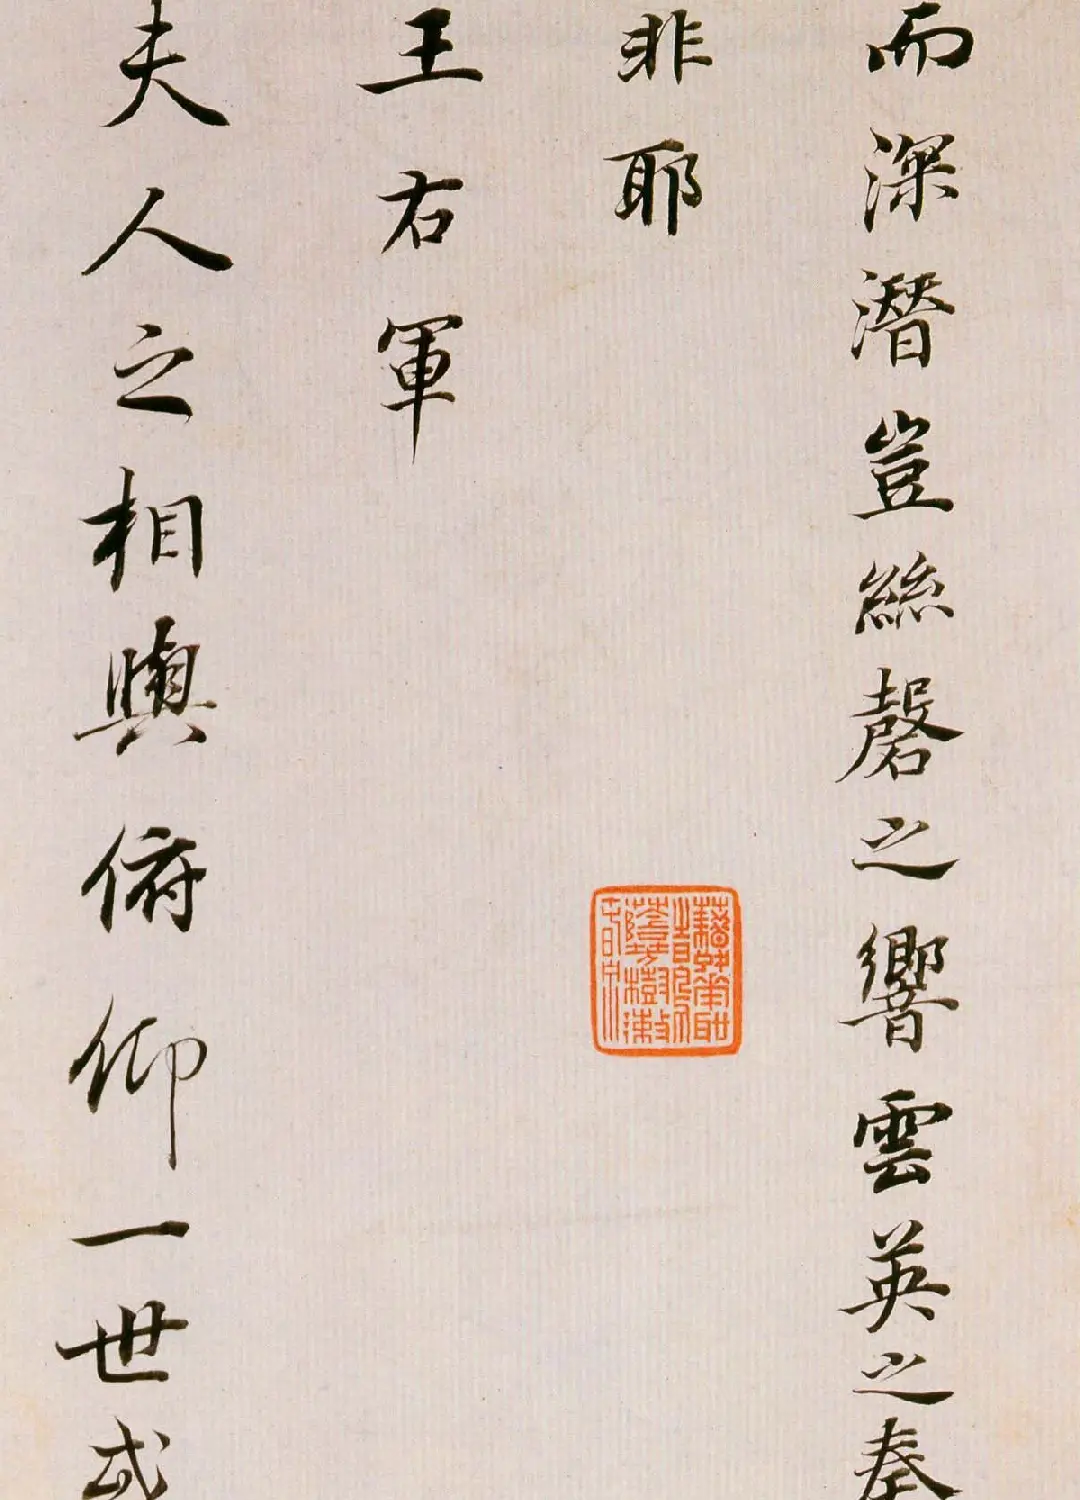 而深潛豈絲磬之響雲英之奏
非耶
王右軍
夫人之相與俯仰一世或